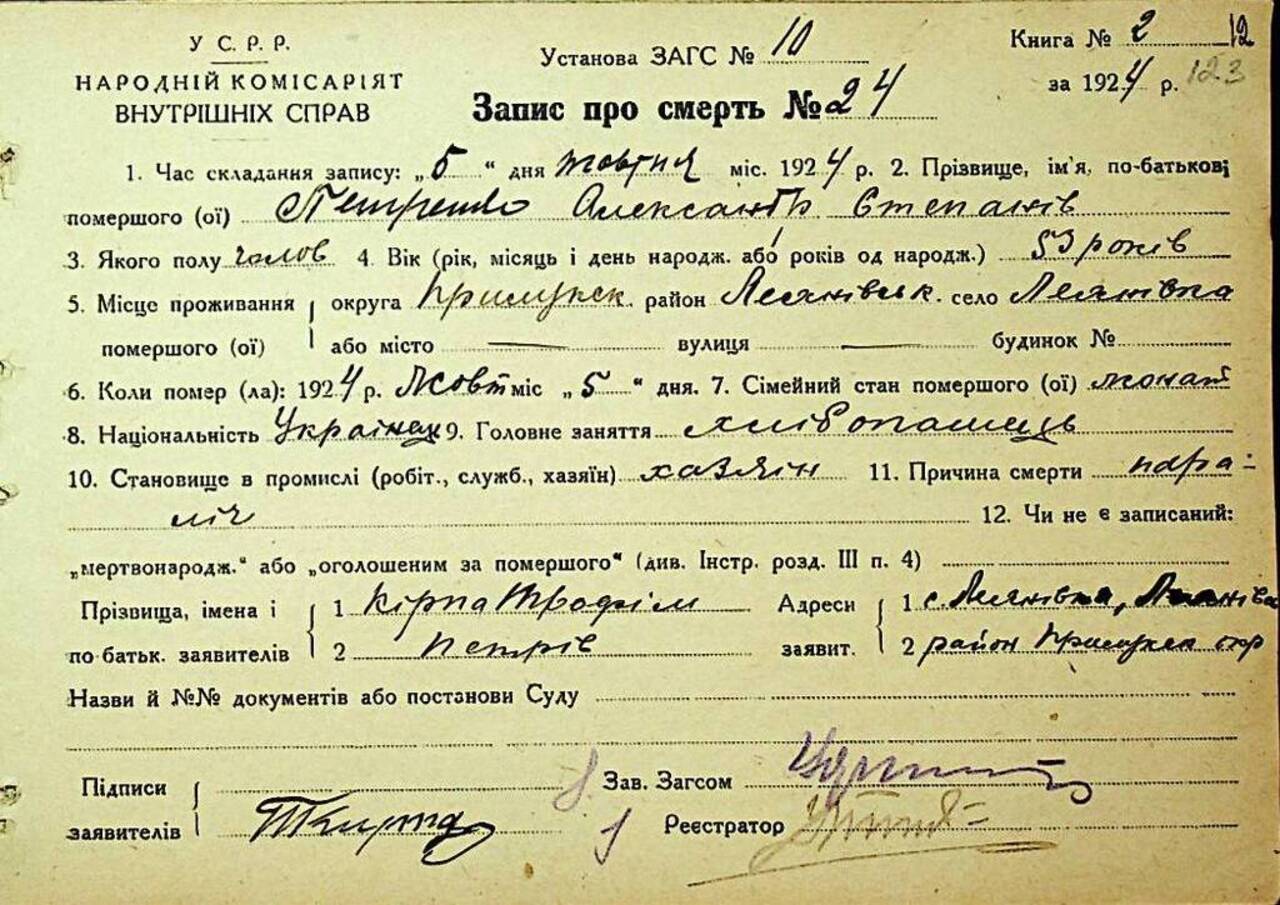 У С. Р. Р.
НАРОДНІЙ КОМІСАРІЯТ
ВНУТРІШНІХ СПРАВ
Установа ЗАГС № 10
Запис про смерть № 24
Книга № 2 12
за 1924 р. 123
1. Час складання запису: „5“ дня жовтня міс. 1924 р. 2. Прізвище, ім'я, по-батькові
помершого (ої) Петренко Александр Степанів
3. Якого полу чолов 4. Вік (рік, місяць і день народж. або років од народж.) 53 років
5. Місце проживання округа Прилукск. район Лелянівськ. село Лелянівка
помершого (ої) або місто — вулиця — будинок №
6. Коли помер (ла): 1924 р. Жовт міс „5“ дня. 7. Сімейний стан помершого (ої) жонат
8. Національність Українец 9. Головне заняття хлібопашець
10. Становище в промислі (робіт., служб., хазяїн) хазяін 11. Причина смерти пара-
ліч 12. Чи не є записаний:
„мертвонародж.“ або „оголошеним за помершого“ (див. Інстр. розд. III п. 4)
Прізвища, імена і 1 Кірпа Трофім Адреси 1 с. Лелянівка,
по батьк. заявителів 2 Петрів заявит. 2 район Прилукск окр
Назви й №№ документів або постанови Суду
Підписи Зав. Загсом
заявителів Ткирпа Реєстратор